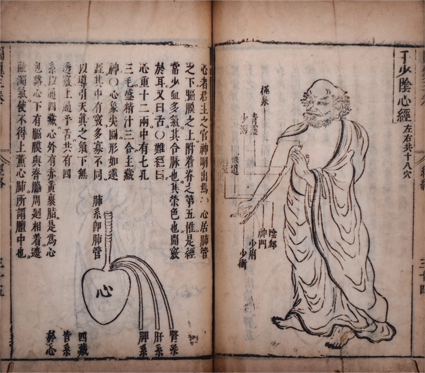 手少陰心經
左右共十八穴
極泉
青靈
少海
陰郄
神門
少府
少衝
心者君主之官神明出焉 心居肺管
之下膈膜之上附着脊之第五椎是經
常少血多氣其合脉也其榮色也開竅
於耳又曰舌○難經曰
心重十二兩中有七孔
三毛盛精汁三合主藏
神○心象尖圓形如蓮
蕊其中有竅多寡不同
以導引天真之氣下無
透竅上通乎舌共有四
系以通四藏心外有赤黃裹脂是為心
包絡心下有膈膜與脊脇周廻相着遮
蔽濁氣使不得上薰心肺所謂膻中也
肺系即肺管
心
腎系
肝系
脾系
四藏
皆系
於心